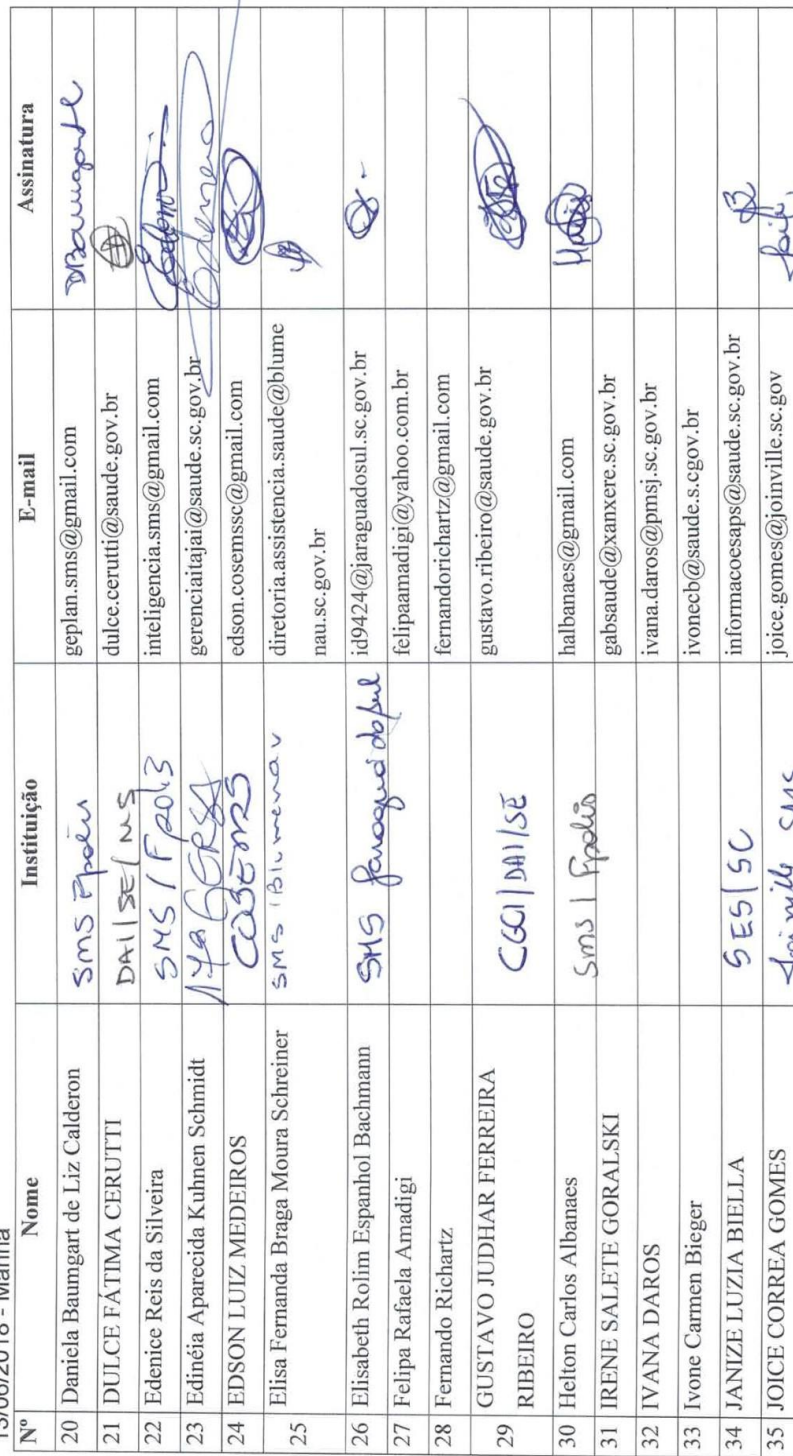 Nº Nome Instituição E-mail Assinatura
20 Daniela Baumgart de Liz Calderon SMS Fpolis geplan.sms@gmail.com DBaumgartl
21 DULCE FÁTIMA CERUTTI DAI/SE/MS dulce.cerutti@saude.gov.br
22 Edenice Reis da Silveira SMS / Fpolis inteligencia.sms@gmail.com
23 Edinéia Aparecida Kuhnen Schmidt 17ª GERSA gerenciaitajai@saude.sc.gov.br
24 EDSON LUIZ MEDEIROS COSEMS edson.cosemssc@gmail.com
25 Elisa Fernanda Braga Moura Schreiner SMS Blumenau diretoria.assistencia.saude@blume
nau.sc.gov.br
26 Elisabeth Rolim Espanhol Bachmann SMS Jaraguá do Sul id9424@jaraguadosul.sc.gov.br
27 Felipa Rafaela Amadigi felipaamadigi@yahoo.com.br
28 Fernando Richartz fernandorichartz@gmail.com
29 GUSTAVO JUDHAR FERREIRA CGCI/DAI/SE gustavo.ribeiro@saude.gov.br
RIBEIRO
30 Helton Carlos Albanaes SMS / Fpolis halbanaes@gmail.com
31 IRENE SALETE GORALSKI gabsaude@xanxere.sc.gov.br
32 IVANA DAROS ivana.daros@pmsj.sc.gov.br
33 Ivone Carmen Bieger ivonecb@saude.s.cgov.br
34 JANIZE LUZIA BIELLA SES/SC informacoesaps@saude.sc.gov.br
35 JOICE CORREA GOMES Joinville SMS joice.gomes@joinville.sc.gov